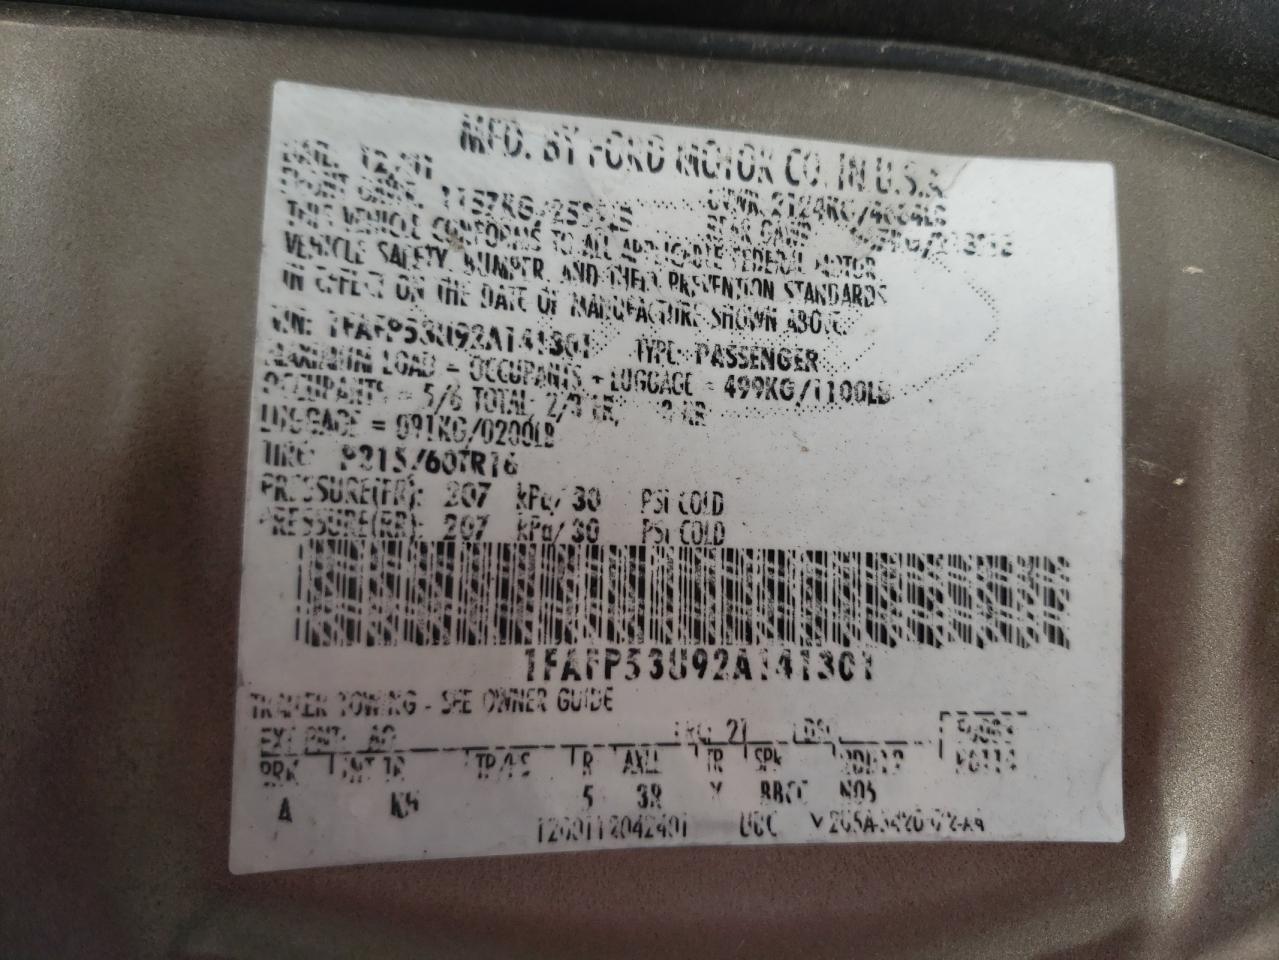 MFD. BY FORD MOTOR CO. IN U.S.A.
DATE: 12/01 GVWR 2124KG/4684LB
FRONT GAWR: 1157KG/ REAR GAWR
THIS VEHICLE CONFORMS TO ALL APPLICABLE FEDERAL MOTOR
VEHICLE SAFETY, BUMPER, AND THEFT PREVENTION STANDARDS
IN EFFECT ON THE DATE OF MANUFACTURE SHOWN ABOVE.
VIN: 1FAFP53U92A141301 TYPE: PASSENGER
MAXIMUM LOAD = OCCUPANTS + LUGGAGE = 499KG/1100LB
OCCUPANTS = 5/6 TOTAL; 2/3 FR, 3 RR
LUGGAGE = 091KG/0200LB
TIRE: P215/60TR16
PRESSURE(FR): 207 kPa/ 30 PSI COLD
PRESSURE(RR): 207 kPa/ 30 PSI COLD
1FAFP53U92A141301
TRAILER TOWING - SEE OWNER GUIDE
EXT PNT: RC: 21 DSO:
BRK INT TR TP/PS R AXLE TR SPR
A 5 3R X BBCC N05
UBC